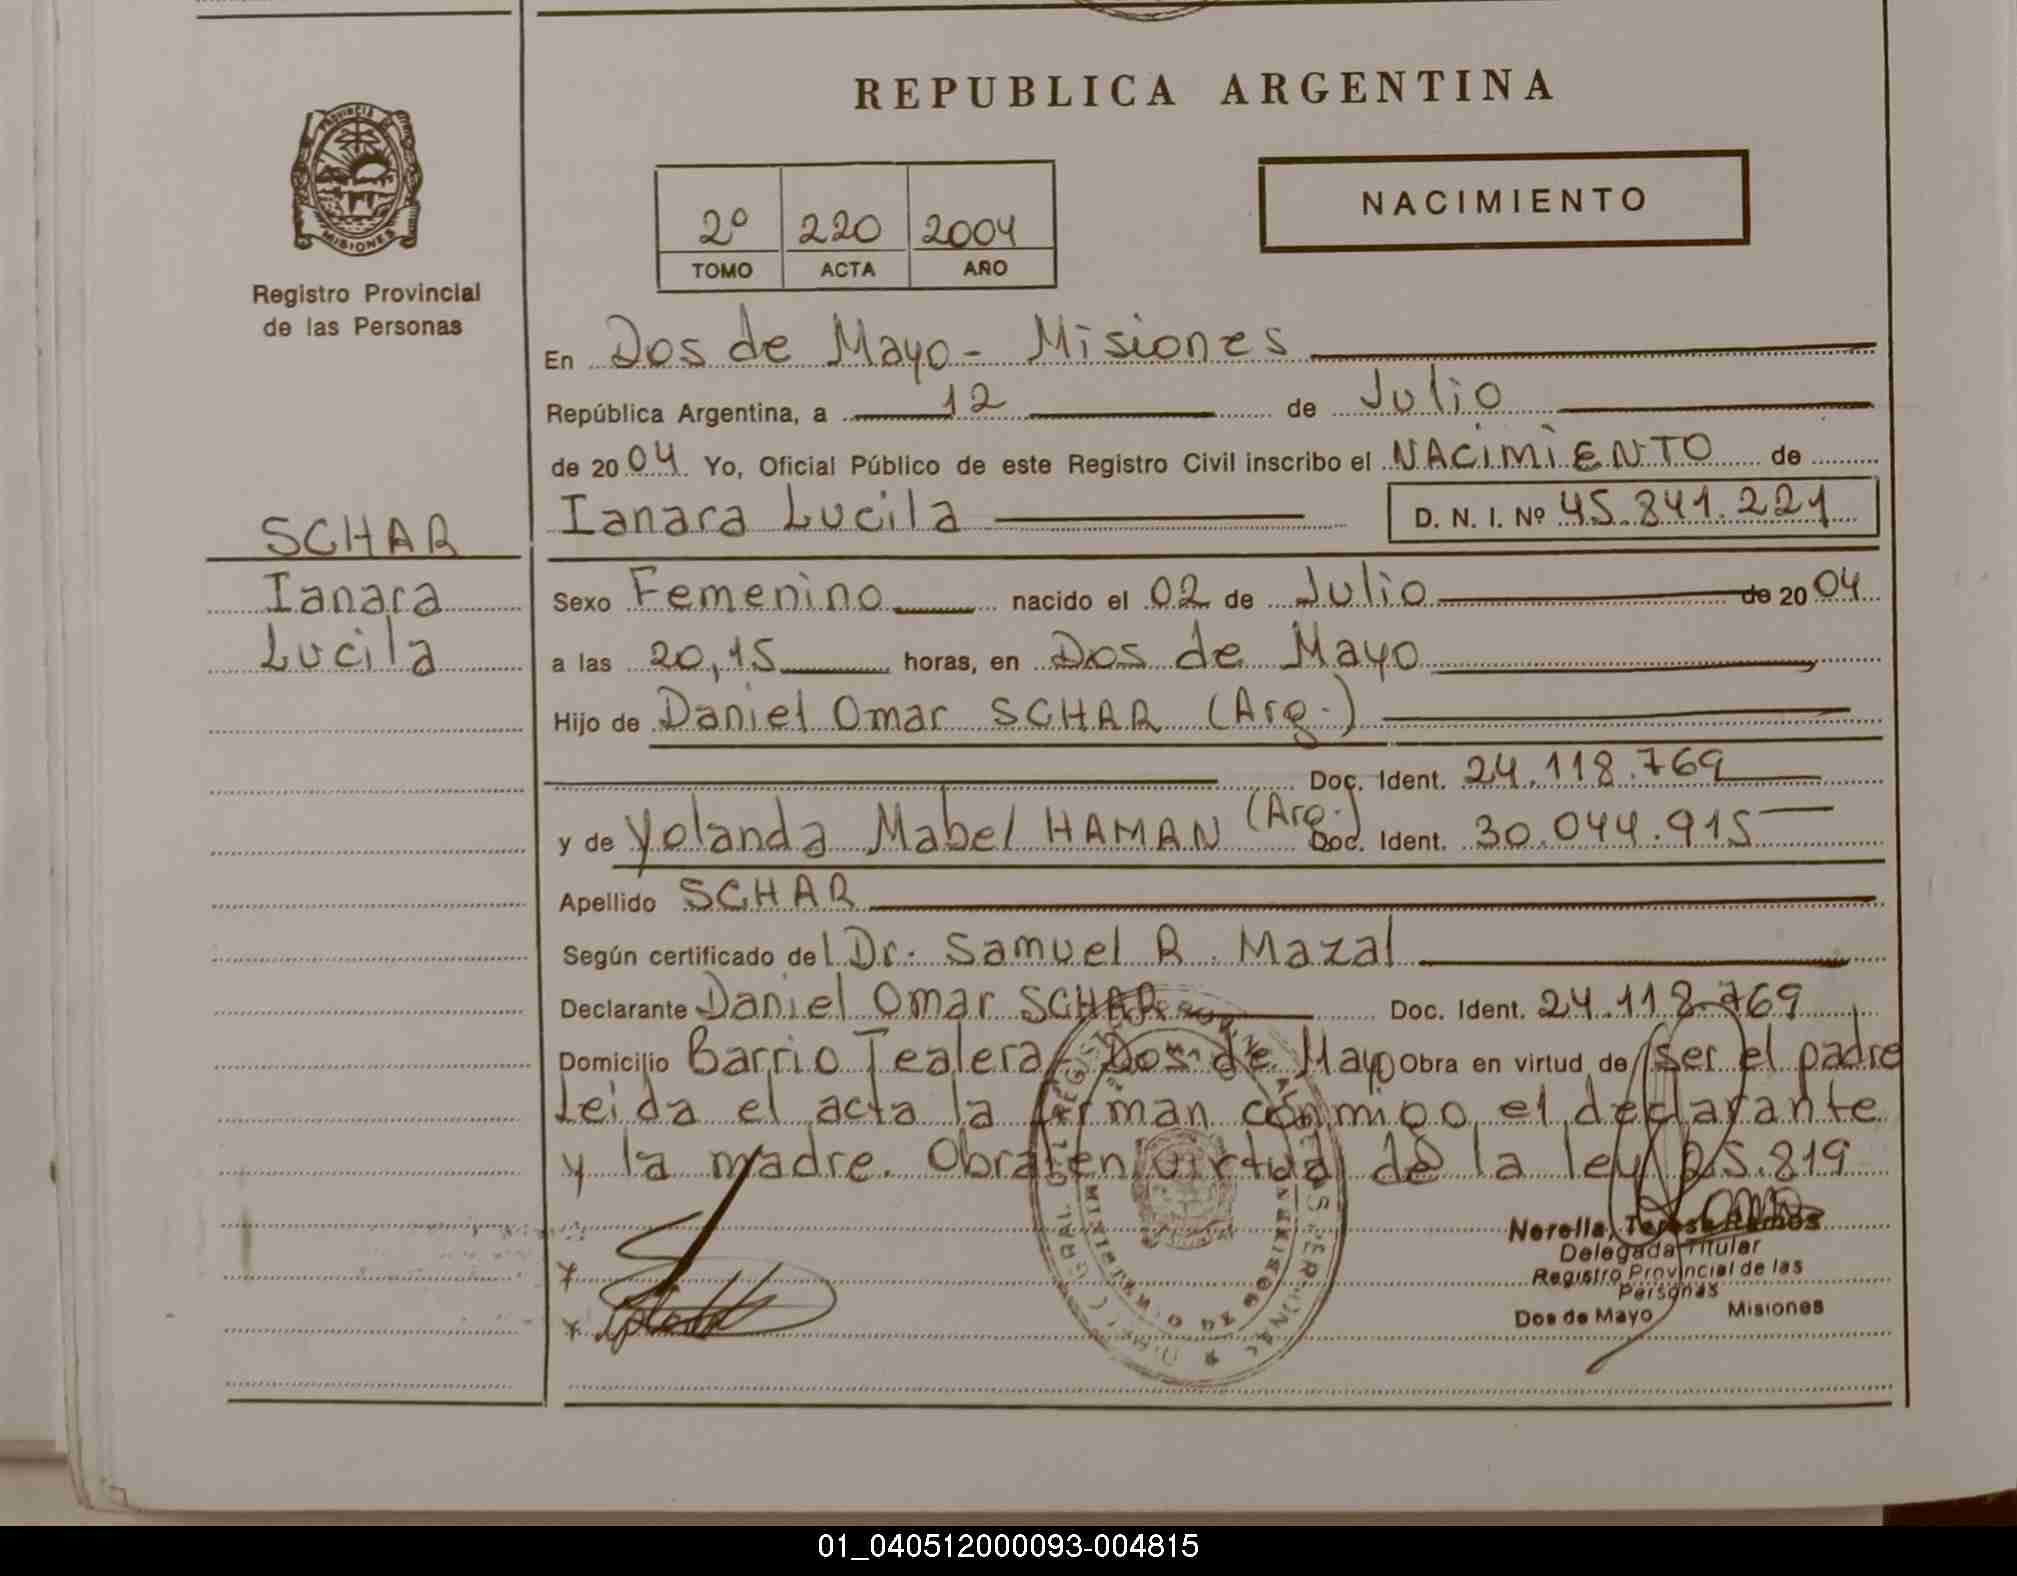 REPUBLICA ARGENTINA
PROVINCIA DE
MISIONES
Registro Provincial
de las Personas
2º 220 2004
TOMO ACTA AÑO
NACIMIENTO
En Dos de Mayo - Misiones
República Argentina, a 12 de Julio
de 2004. Yo, Oficial Público de este Registro Civil inscribo el NACIMIENTO de
Ianara Lucila D. N. I. Nº 45.841.221
SCHAR
Ianara
Lucila
Sexo Femenino nacido el 02 de Julio de 2004
a las 20,15 horas, en Dos de Mayo
Hijo de Daniel Omar SCHAR (Arg.)
Doc. Ident. 24.118.769
y de Yolanda Mabel HAMAN (Arg.) Doc. Ident. 30.044.915
Apellido SCHAR
Según certificado del Dr. Samuel R. Mazal
Declarante Daniel Omar SCHAR Doc. Ident. 24.118.769
Domicilio Barrio Tealera - Dos de Mayo Obra en virtud de ser el padre
Leida el acta la firman conmigo el declarante
y la madre. Obra en virtud de la ley 25.819
Nerella, Teresa Ramos
Delegada Titular
Registro Provincial de las
Personas
Dos de Mayo Misiones
01_040512000093-004815